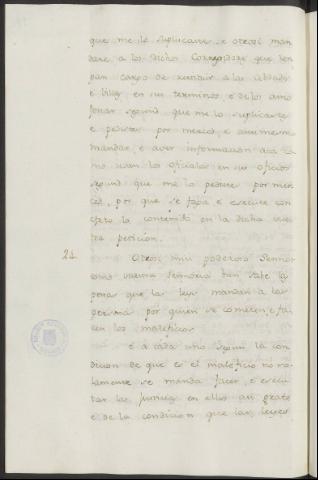 que me lo suplicare, e otrosi man
dare a los dichos Corregidores que ten
gan cargo de a las cibdades
e billas en sus terminos, e de los amo
jonar segund que me lo suplicastes
e pedistes por merced, e asimesmo
mandar, e aver informacion de co
mo usan los oficiales en sus oficios
segund que me lo pedistes por mer
ced, por que se faga e execute con
efeto lo contenido en la dicha vues
tra peticion.
24 Otrosi muy poderoso Sennor
como vuestra Sennoria bien sabe la
pena que las leyes mandan a las
personas por quien se cometen, e fa
cen los maleficios
e á cada uno segun la con
dicion de que es el maleficio no so
lamente se manda facer, e execu
tar las justicias en ellos en grado
e de la condicion que las leyes